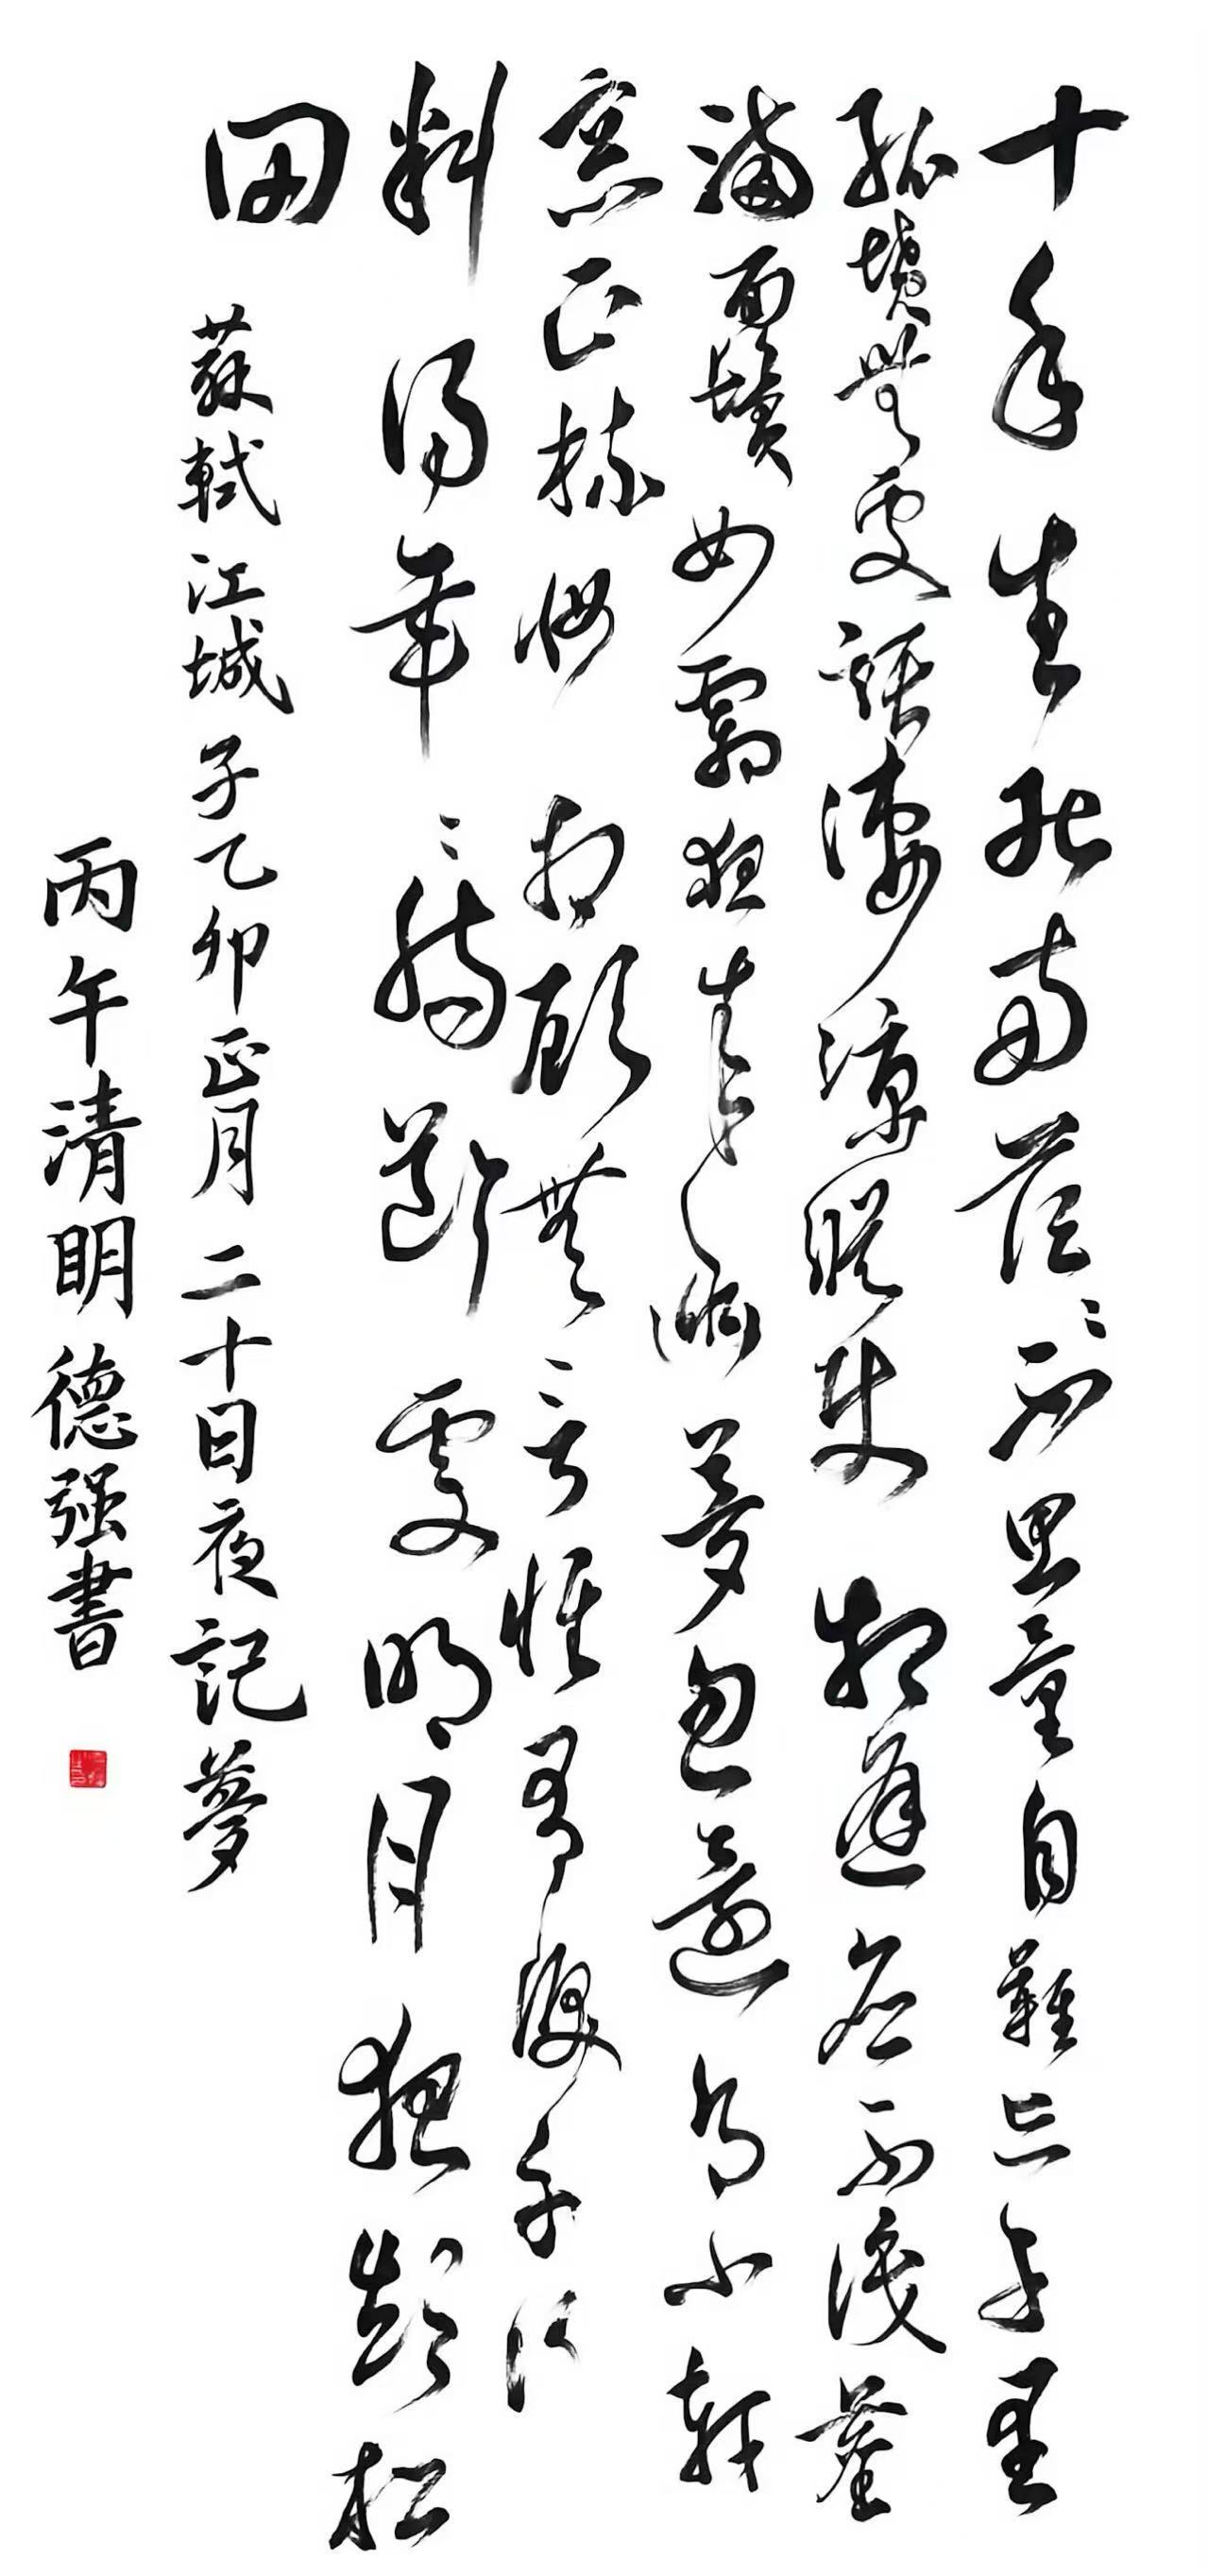 十年生死兩茫〻不思量自難忘千里
孤墳無處話淒涼縱使相逢應不識塵
滿面鬢如霜夜來幽夢忽還鄉小軒
窗正梳妝相顧無言惟有淚千行
料得年〻腸斷處明月夜短松
岡 蘇軾江城子乙卯正月二十日夜記夢
丙午清明德强書